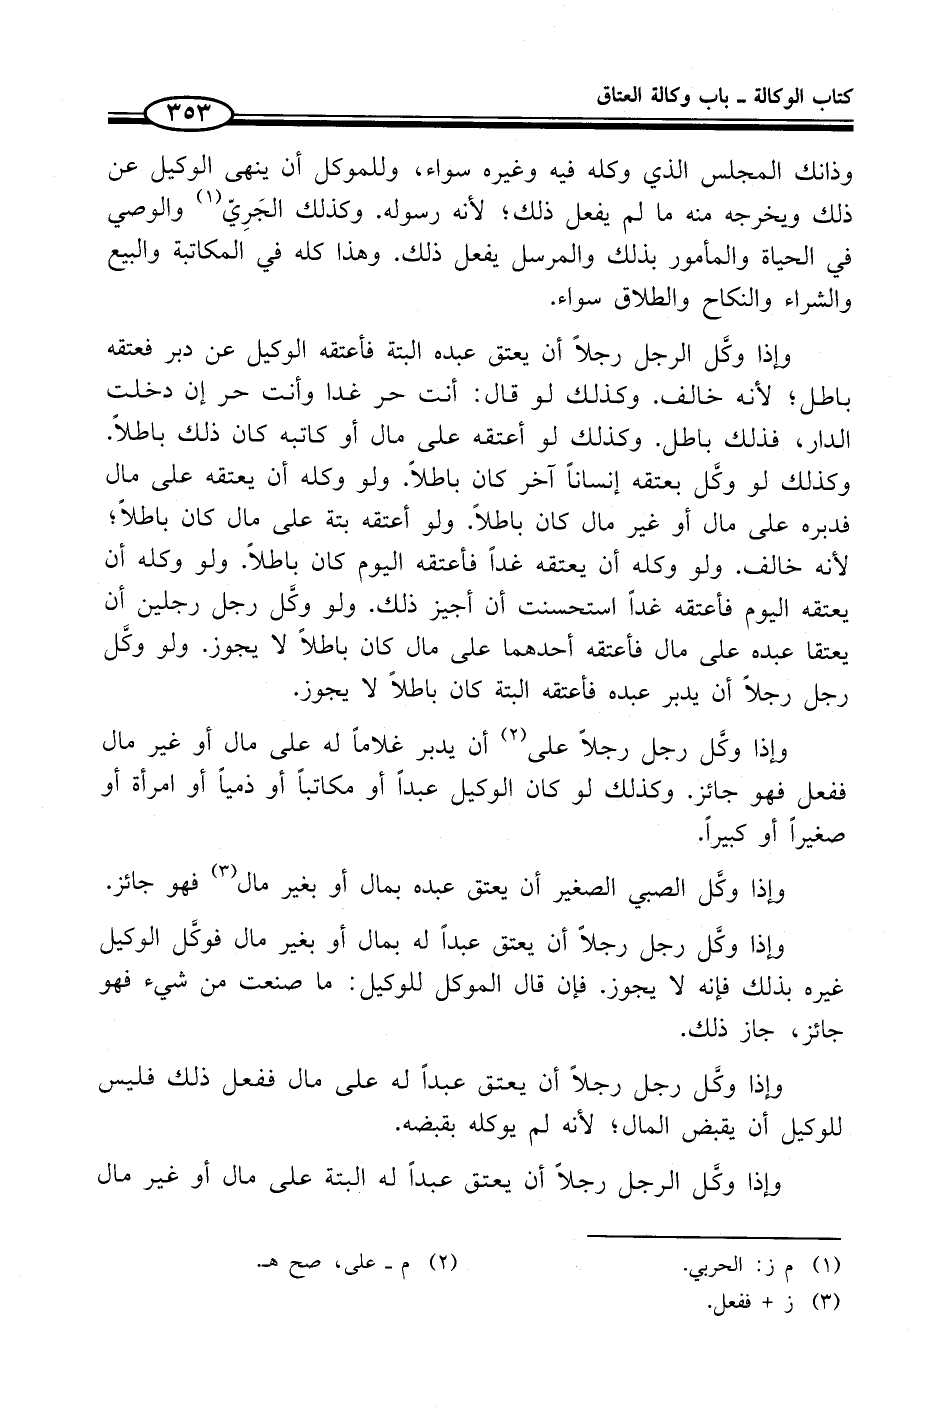 كتاب الوكالة - باب وكالة العتاق
٣٥٣
وذانك المجلس الذي وكله فيه وغيره سواء، وللموكل أن ينهى الوكيل عن
ذلك ويخرجه منه ما لم يفعل ذلك؛ لأنه رسوله. وكذلك الجَرِيّ(١) والوصي
في الحياة والمأمور بذلك والمرسل يفعل ذلك. وهذا كله في المكاتبة والبيع
والشراء والنكاح والطلاق سواء.
وإذا وكَّل الرجل رجلاً أن يعتق عبده البتة فأعتقه الوكيل عن دبر فعتقه
باطل؛ لأنه خالف. وكذلك لو قال: أنت حر غدا وأنت حر إن دخلت
الدار، فذلك باطل. وكذلك لو أعتقه على مال أو كاتبه كان ذلك باطلاً.
وكذلك لو وكَّل بعتقه إنساناً آخر كان باطلاً. ولو وكله أن يعتقه على مال
فدبره على مال أو غير مال كان باطلاً. ولو أعتقه بتة على مال كان باطلاً؛
لأنه خالف. ولو وكله أن يعتقه غداً فأعتقه اليوم كان باطلاً. ولو وكله أن
يعتقه اليوم فأعتقه غداً استحسنت أن أجيز ذلك. ولو وكَّل رجل رجلين أن
يعتقا عبده على مال فأعتقه أحدهما على مال كان باطلاً لا يجوز. ولو وكَّل
رجل رجلاً أن يدبر عبده فأعتقه البتة كان باطلاً لا يجوز.
وإذا وكَّل رجل رجلاً على(٢) أن يدبر غلاماً له على مال أو غير مال
ففعل فهو جائز. وكذلك لو كان الوكيل عبداً أو مكاتباً أو ذمياً أو امرأة أو
صغيراً أو كبيراً.
وإذا وكَّل الصبي الصغير أن يعتق عبده بمال أو بغير مال(٣) فهو جائز.
وإذا وكَّل رجل رجلاً أن يعتق عبداً له بمال أو بغير مال فوكَّل الوكيل
غيره بذلك فإنه لا يجوز. فإن قال الموكل للوكيل: ما صنعت من شيء فهو
جائز، جاز ذلك.
وإذا وكَّل رجل رجلاً أن يعتق عبداً له على مال ففعل ذلك فليس
للوكيل أن يقبض المال؛ لأنه لم يوكله بقبضه.
وإذا وكَّل الرجل رجلاً أن يعتق عبداً له البتة على مال أو غير مال
(١) م ز: الحربي. (٢) م - على، صح هـ.
(٣) ز + ففعل.